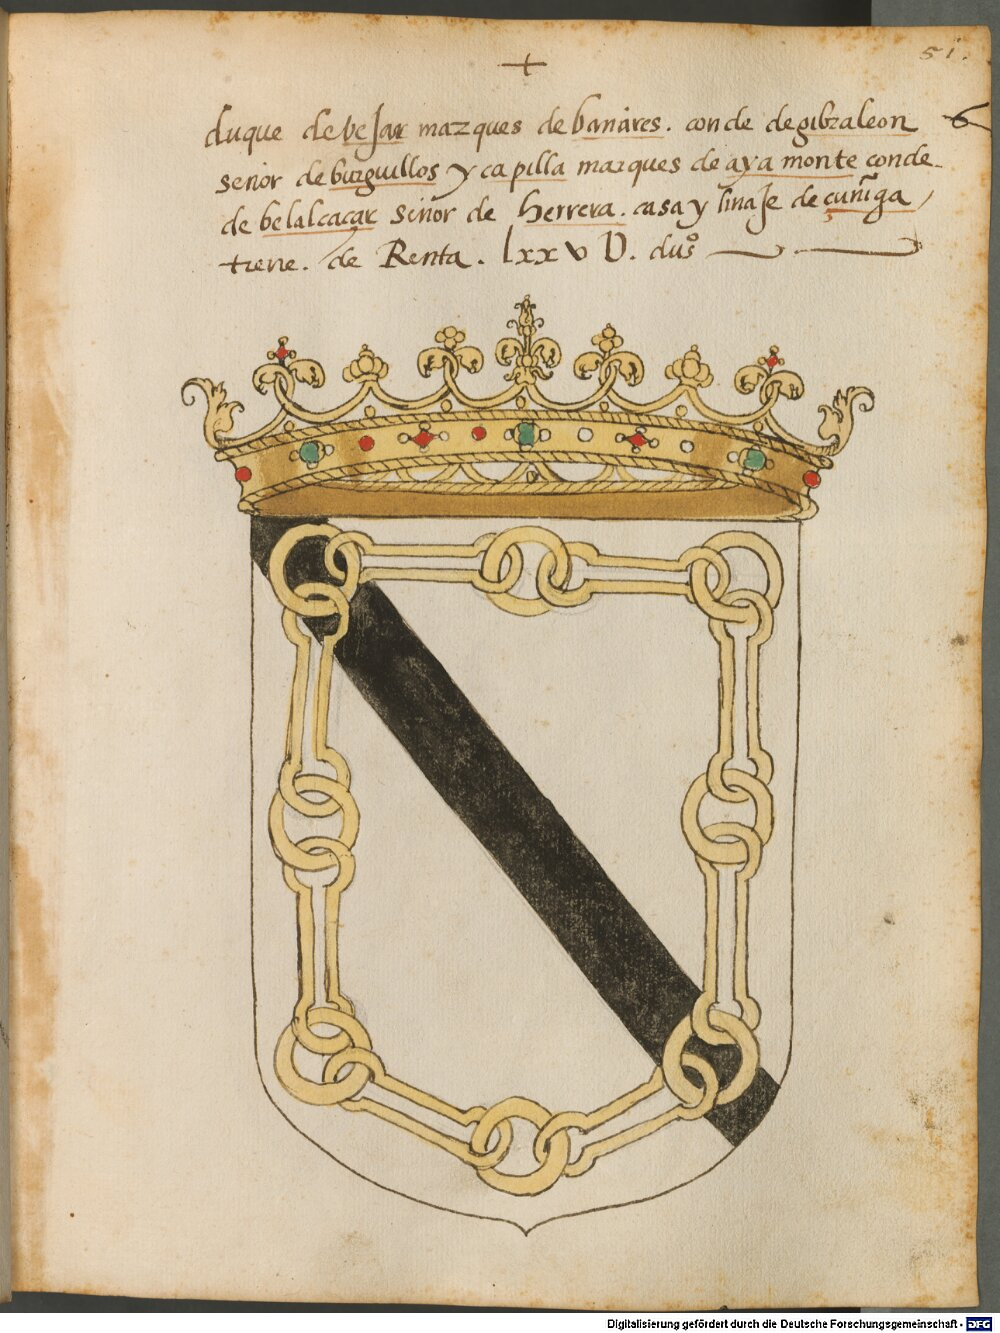 51.
+
duque de bejar mazques de banares. conde degibzaleon 6
señor de buzguillos y capilla mazques de aya monte conde
de belalcaçar señor de herrera. casa y linaje de çuñiga
tiene. de Renta. lxxv D. dus°
Digitalisierung gefördert durch die Deutsche Forschungsgemeinschaft - DFG